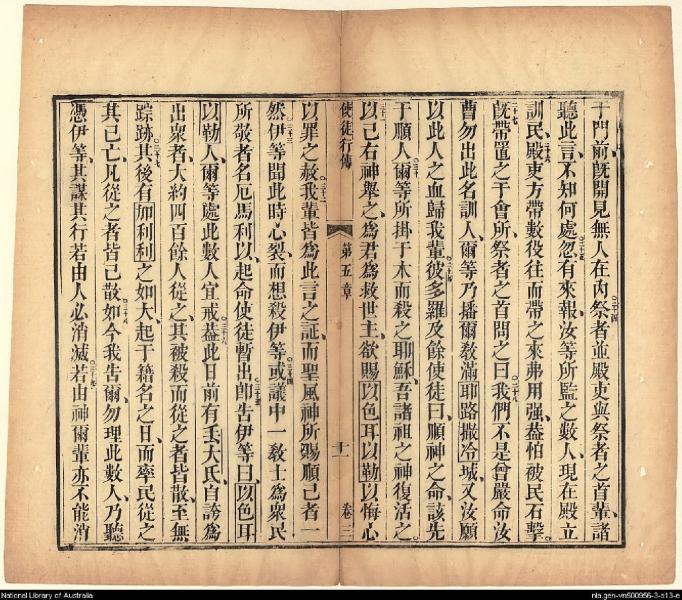 于門前、旣開見無人在內。祭者並殿吏與祭者之首輩、諸
聽此言、不知何處、忽有來報、汝等所監之數人、現在殿立
訓民、殿吏方帶數役往而帶之來、弗用强、蓋怕被民石擊。
旣帶置之于會所、祭者之首問之曰、我們不是曾嚴命汝
曹勿出此名訓人、爾等乃播爾敎滿耶路撒冷城、又汝願
以此人之血歸我輩。彼多羅及餘使徒曰、順神之命該先
于順人、爾等所掛于木而殺之耶穌、吾諸祖之神復活之。
以己右神舉之、爲君爲救世主、欲賜以色耳以勒以悔心
使徒行傳 第五章 十一 卷三
以罪之赦。我輩皆爲此言之証、而聖風神所賜順己者一
然。伊等聞此時心裂、而想殺伊等。或議中一敎士爲衆民
所敬者名厄馬利以、起命使徒暫出、卽告伊等曰、以色耳
以勒人、爾等處此數人宜戒。蓋此日前有丢大氏、自誇爲
出衆者、大約四百餘人從之、其被殺而從之者皆散、至無
踪跡。其後有加利利之如大、起于籍名之日、而率民從之
其已亡、凡從之者皆已散。如今我告爾、勿理此數人、乃聽
憑伊等、其謀其行若由人必消滅。若由神爾輩亦不能消
National Library of Australia
nla.gen-vn500956-3-s13-e